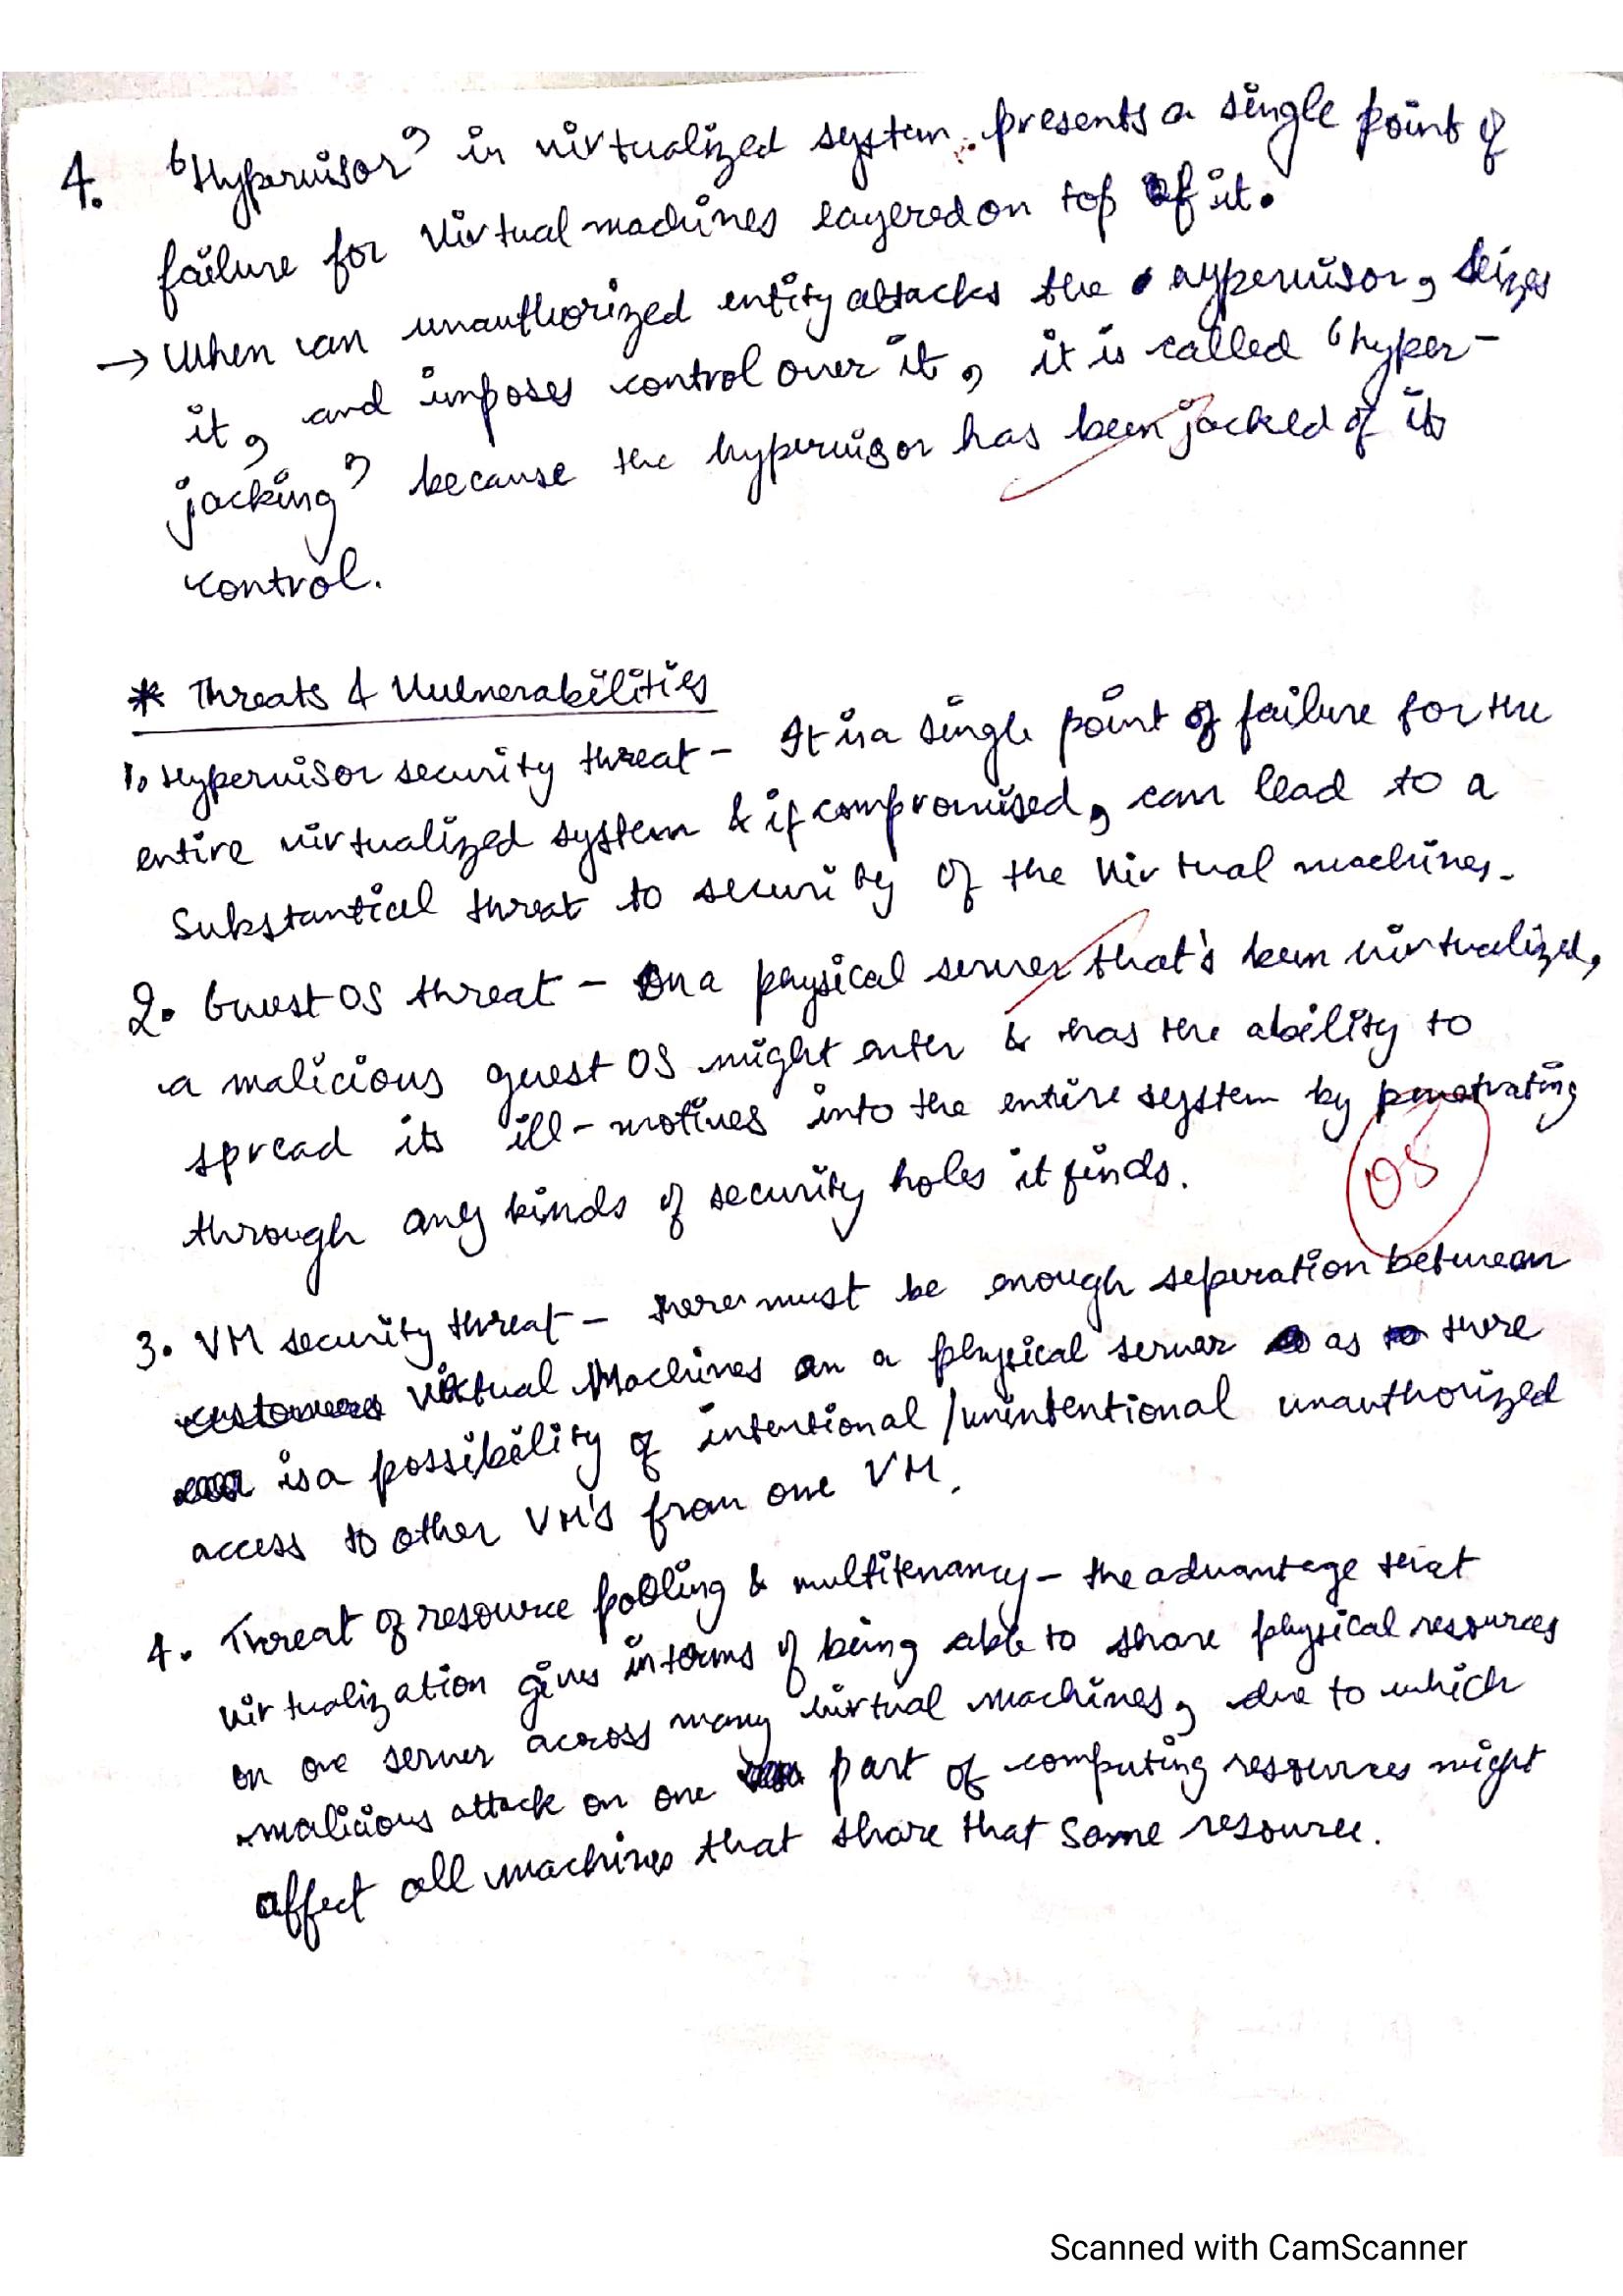 4. "Hypervisor" in virtualized system presents a single point of
failure for virtual machines layered on top of it.
→ When an unauthorized entity attacks the hypervisor, seizes
it, and imposes control over it, it is called "hyper-
jacking" because the hypervisor has been jacked of its
control.
* Threats & Vulnerabilities
1. Hypervisor security threat - It is a single point of failure for the
entire virtualized system & if compromised, can lead to a
Substantial threat to security of the virtual machines.
2. Guest OS threat - On a physical server that's been virtualized,
a malicious guest OS might enter & has the ability to
spread its ill-motives into the entire system by penetrating
through any kinds of security holes it finds.
05
3. VM security threat - there must be enough seperation between
customers virtual Machines on a physical server as there
is a possibility of intentional/unintentional unauthorized
access to other VM's from one VM.
4. Threat of resource pooling & multitenancy - the advantage that
virtualization gives in terms of being able to share physical resources
on one server across many virtual machines, due to which
malicious attack on one part of computing resources might
affect all machines that share that same resource.
Scanned with CamScanner